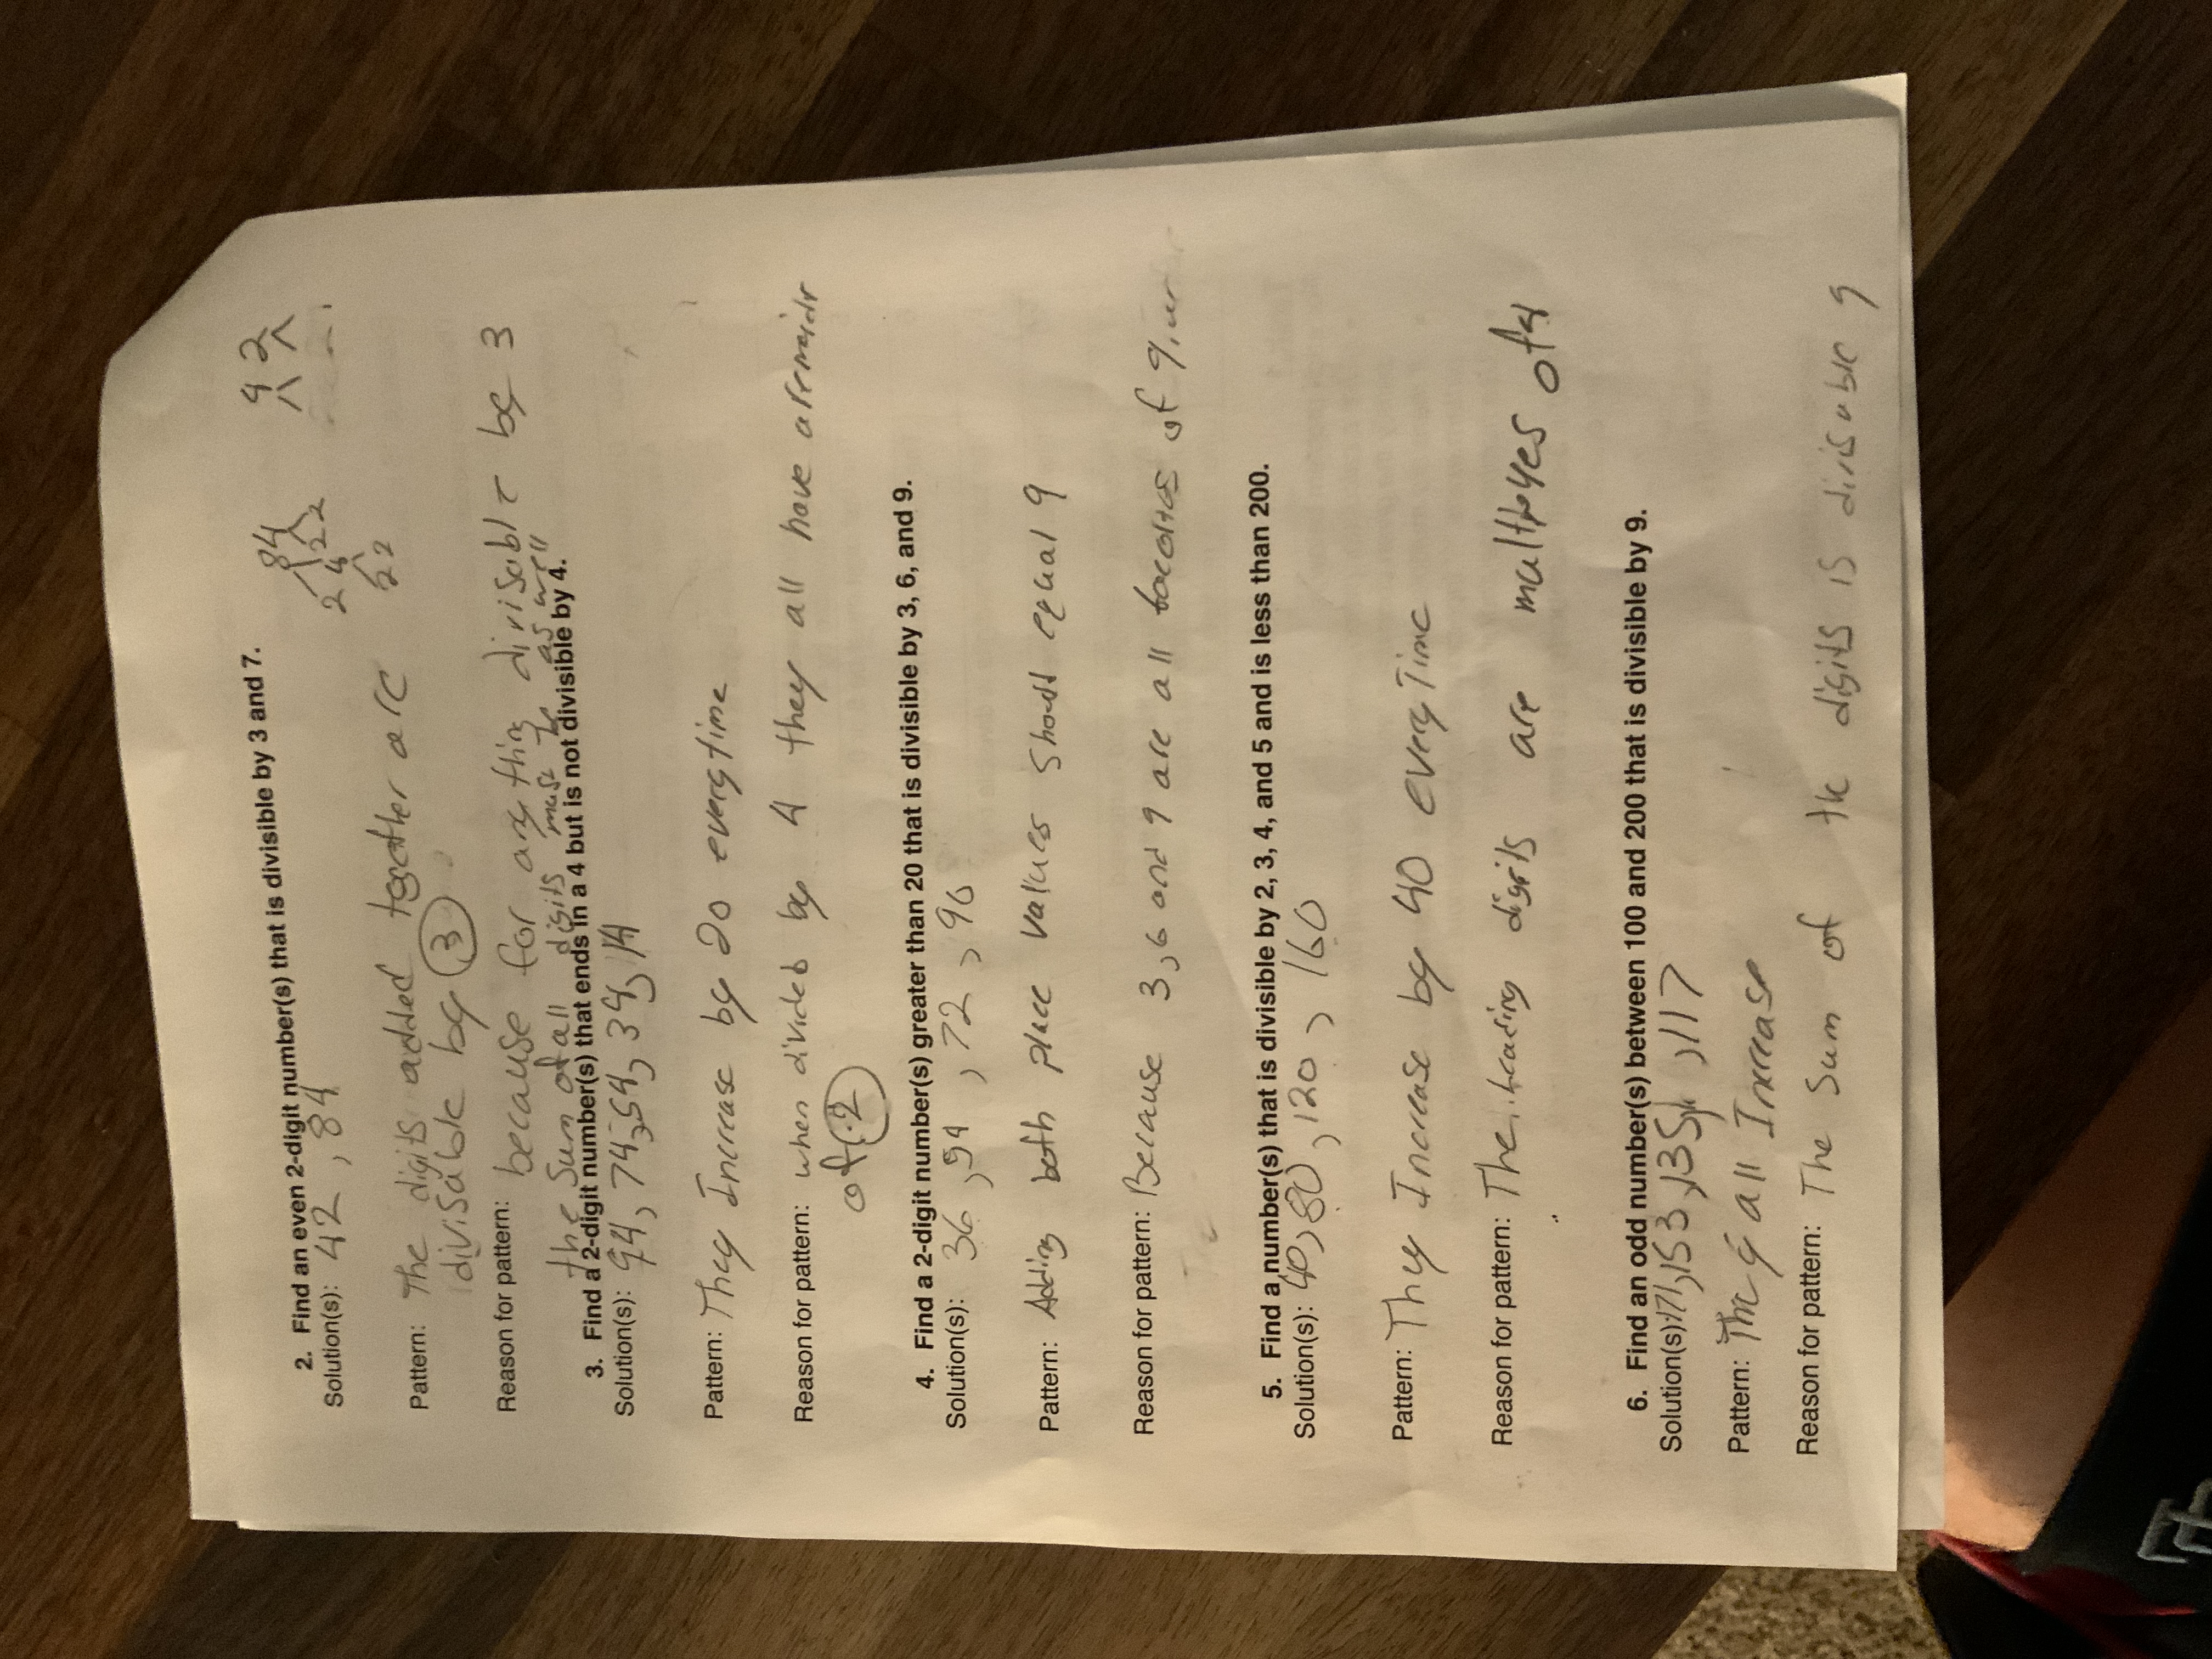 2. Find an even 2-digit number(s) that is divisible by 3 and 7.
Solution(s): 42, 84
84
2 4 2 2
2 2
Pattern: The digits added together are
divisable by 3
Reason for pattern: because for any thing divisable by 3
the sum of all digits must be as well
3. Find a 2-digit number(s) that ends in a 4 but is not divisible by 4.
Solution(s): 94, 74, 54, 34, 14
Pattern: They Increase by 20 everytime
Reason for pattern: when divided by 4 they all have a
of .2
4. Find a 2-digit number(s) greater than 20 that is divisible by 3, 6, and 9.
Solution(s): 36, 54, 72, 90
Pattern: Adding both place values should equal 9
Reason for pattern: Because 3, 6 and 9 are all of 9.
5. Find a number(s) that is divisible by 2, 3, 4, and 5 and is less than 200.
Solution(s): 40, 80, 120, 160
Pattern: They Increase by 40 every Time
Reason for pattern: The leading digits are of 4
6. Find an odd number(s) between 100 and 200 that is divisible by 9.
Solution(s): 171, 153, 135, 117
Pattern: They all Increase
Reason for pattern: The sum of the digits is divisable 9